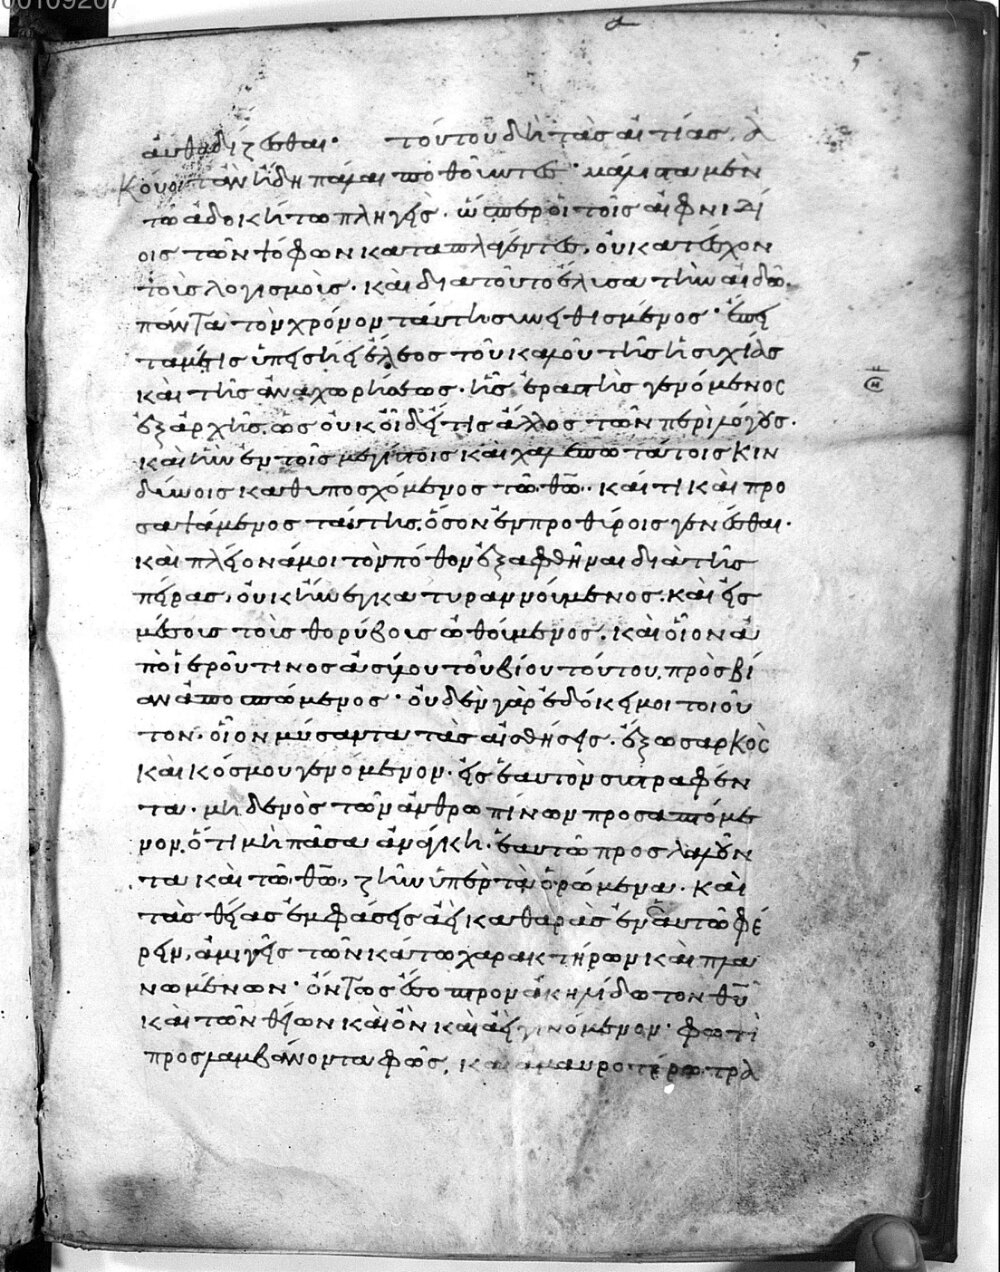 00109207
ε
αὐθαδίζεσθαι· τούτου δὴ τὰς αἰτίας, ἀ
κούοιτ' ἂν ἤδη πάλαι ποθοῦντες· μάλιστα μὲν
τῷ ἀδοκήτῳ πληγεὶς· ὥσπερ οἱ τοῖς αἰφνιδί
οις τῶν ψόφων καταπλαγέντες, οὐ κατέσχον
τοῖς λογισμοῖς· καὶ διατοῦτο ἔλυσα τὴν αἰδῶ.
πάντα τὸν χρόνον ταύτη συνειθισμένος· ἔπει
τά με τις ὑπεσήει ἔρως τοῦ καλοῦ τῆς ἡσυχίας
καὶ τῆς ἀναχωρήσεως· ἧς ἐραστὴς γενόμενος
ἐξ ἀρχῆς, ὡς οὐκ οἶδ' εἴ τις ἄλλος τῶν περὶ λόγους.
καὶ ἣν ἐν τοῖς μεγίστοις καὶ χαλεπωτάτοις κιν
δύνοις καθυποσχόμενος τῷ θῶ. καί τι καὶ προ
σαψάμενος ταύτης, ὅσον ἐν προθύροις γενέσθαι.
καὶ πλέον ἀμοι τὸν πόθον ἐξαφθῆναι διὰ τῆς
πείρας, οὐκ ἤνεγκα τυραννούμενος. καὶ εἰς
μέσοις τοῖς θορύβοις ὠθούμενος. καὶ οἷον ἀ
πὸ ἱεροῦ τινος ἀσύλου τοῦ βίου τούτου, πρὸς βί
αν ἀποσπώμενος· οὐδὲν γὰρ ἐδόκει μοι τοιοῦ
τον· οἷον μύσαντα τὰς αἰσθήσεις· ἔξω σαρκὸς
καὶ κόσμου γενόμενον· εἰς ἑαυτὸν συστραφέν
τα· μηδενὸς τῶν ἀνθρωπίνων προσαπτόμε
νον, ὅτι μὴ πᾶσα ἀνάγκη· ἑαυτῷ προσλαλοῦν
τα καὶ τῷ θῶ, ζῆν ὑπὲρ τὰ ὁρώμενα. καὶ
τὰς θείας ἐμφάσεις ἀεὶ καθαρὰς ἐν ἑαυτῷ φέ
ρειν, ἀμιγεῖς τῶν κάτω χαρακτήρων καὶ πλα
νωμένων· ὄντως ἔσοπτρον ἀκηλίδωτον θῦ
καὶ τῶν θείων καὶ ὂν καὶ ἀεὶ γινόμενον· φωτὶ
προσλαμβάνοντα φῶς, καὶ ἀμαυροτέρῳ τρα